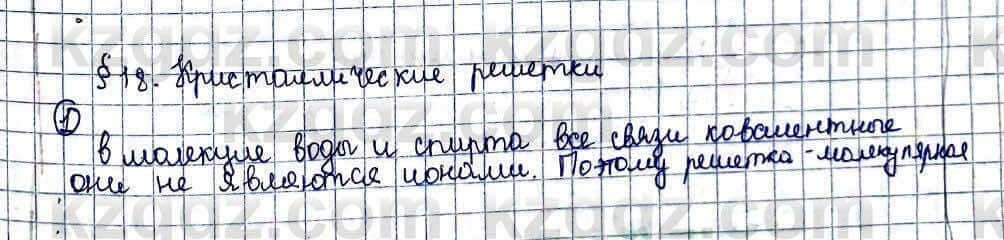 § 18. Кристаллические решетки
①
В молекуле воды и спирта все связи ковалентные
они не являются ионами. Поэтому решетка - молекулярная
kzgdz.com